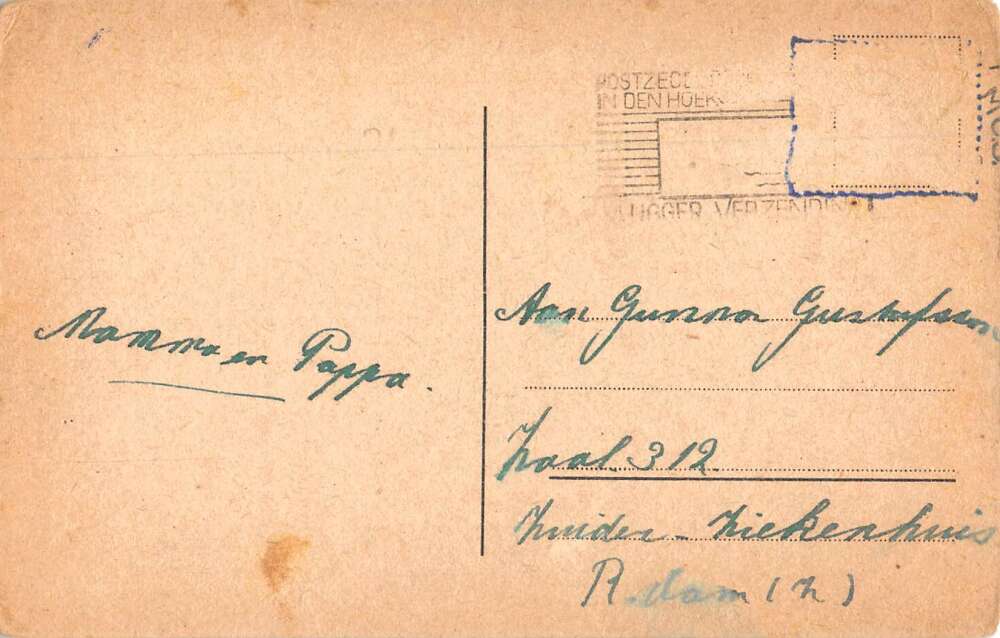 POSTZEGE
IN DEN HOEK
VLUGGER VERZENDING
Mamma en Pappa.
Aan Gunnar Gustafsson
Zaal 312
Zuider-Ziekenhuis
R.dam (Z)